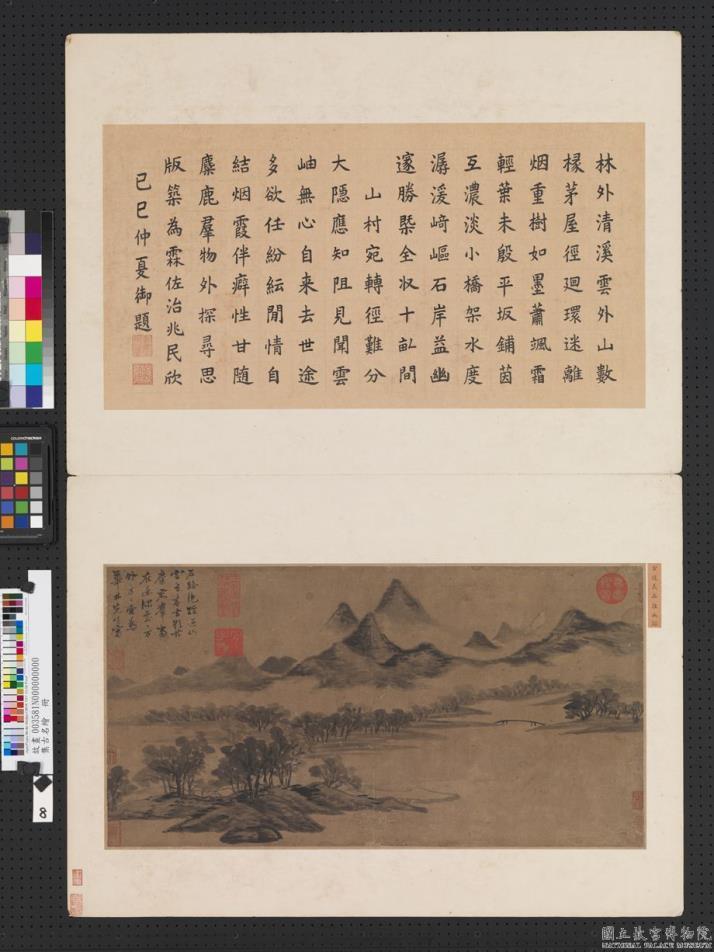 林外清溪雲外山數
椽茅屋徑迴環迷離
烟重樹如墨蕭颯霜
輕葉未殷平坂鋪茵
互濃淡小橋架水度
潺湲崎嶇石岸益幽
邃勝槩全収十畝間
山村宛轉徑難分
大隱應知阻見聞雲
岫無心自来去世途
多欲任紛紜閒情自
結烟霞伴癖性甘隨
麋鹿羣物外探尋思
版築為霖佐治兆民欣
己巳仲夏御題
故畫 003581N000000000
集古名繪 冊
8
國立故宮博物院
NATIONAL PALACE MUSEUM